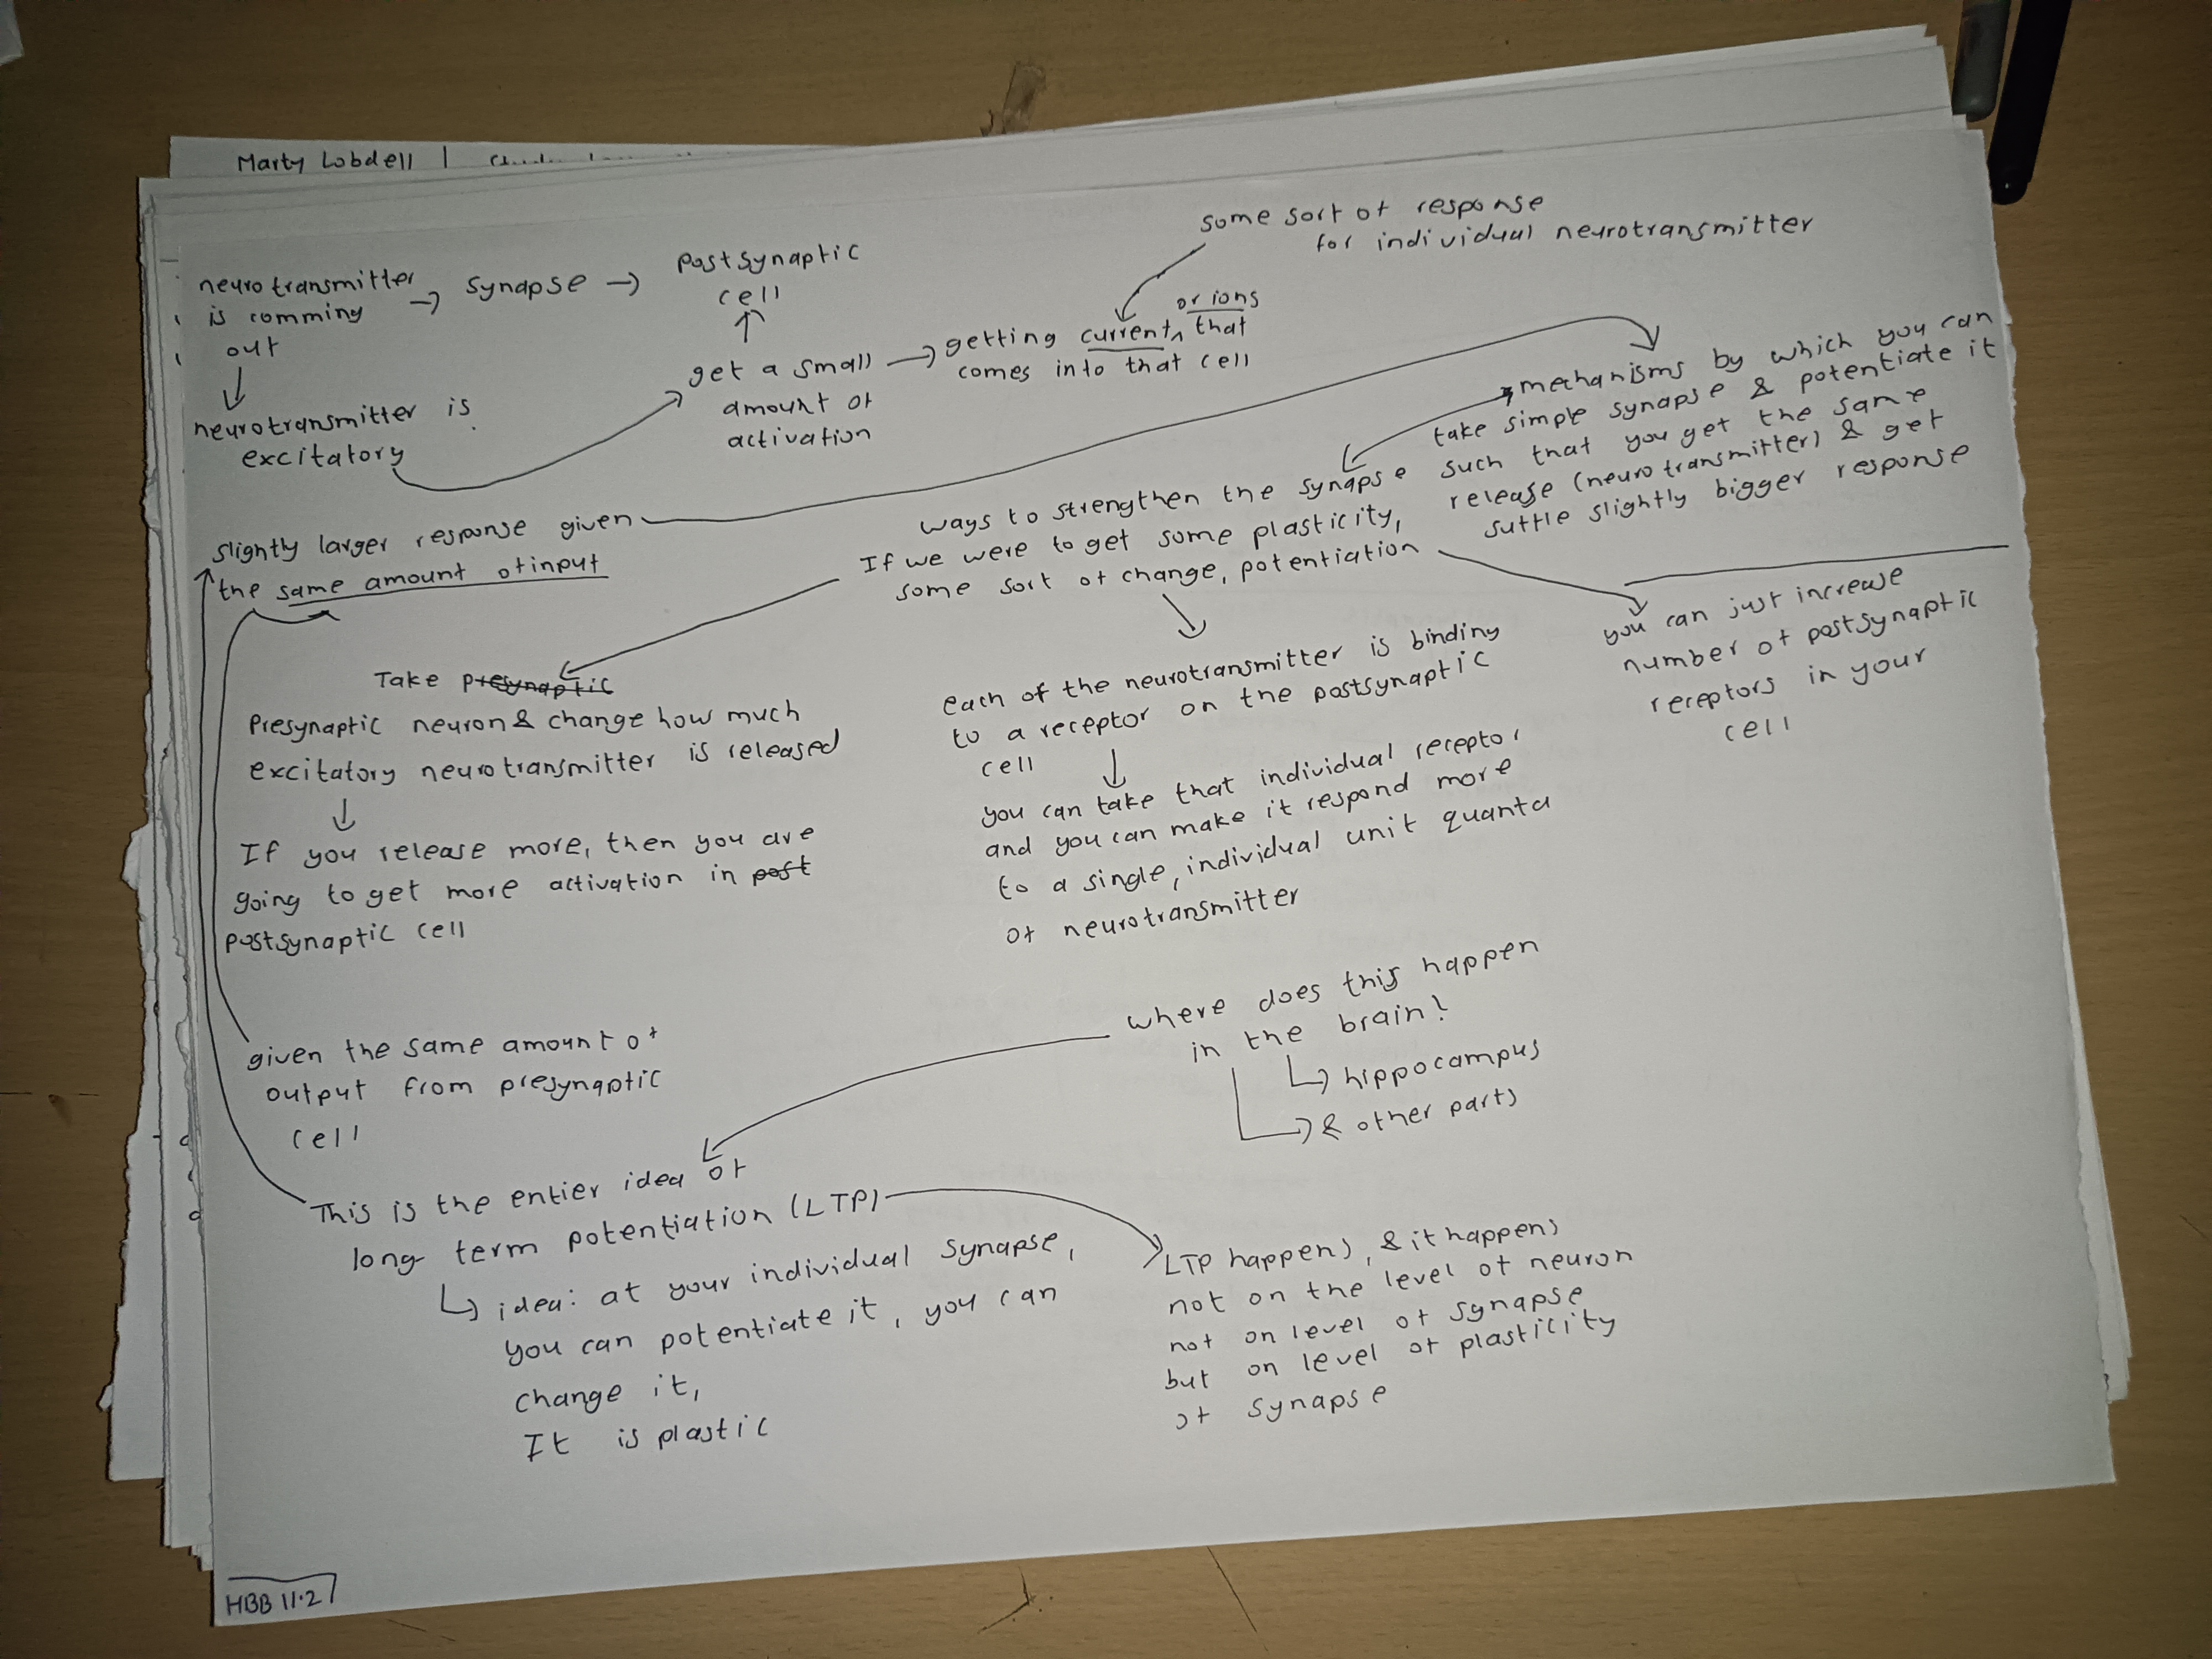 Marty Lobdell |
neurotransmitter
is comming
out
→ synapse →
postsynaptic
cell
some sort of response
for individual neurotransmitter
neurotransmitter is
excitatory
get a small
amount of
activation
getting current, or ions that
comes into that cell
mechanisms by which you can
take simple synapse & potentiate it
such that you get the same
release (neurotransmitter) & get
suttle slightly bigger response
slightly larger response given
the same amount of input
ways to strengthen the synapse
If we were to get some plasticity,
some sort of change, potentiation
Take presynaptic
Presynaptic neuron & change how much
excitatory neurotransmitter is released
If you release more, then you are
going to get more activation in post
postsynaptic cell
each of the neurotransmitter is binding
to a receptor on the postsynaptic
cell
you can take that individual receptor
and you can make it respond more
to a single, individual unit quanta
of neurotransmitter
you can just increase
number of postsynaptic
receptors in your
cell
given the same amount of
output from presynaptic
cell
where does this happen
in the brain?
hippocampus
& other parts
This is the entier idea of
long term potentiation (LTP)
idea: at your individual synapse,
you can potentiate it, you can
change it,
It is plastic
LTP happens, & it happens
not on the level of neuron
not on level of synapse
but on level of plasticity
of synapse
HBB 11.2